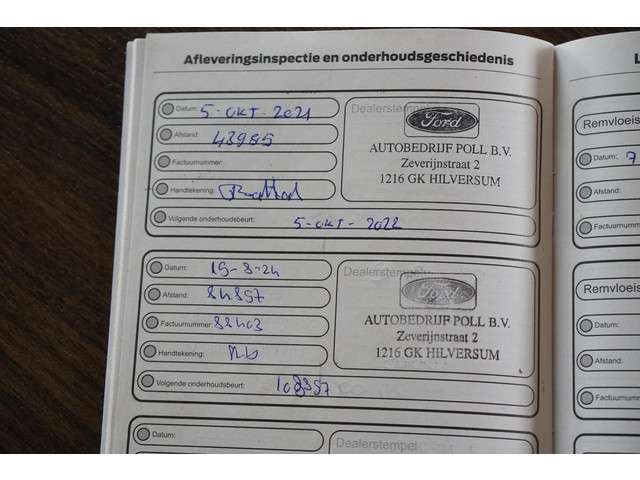 Afleveringsinspectie en onderhoudsgeschiedenis
Datum: 5-OKT-2021
Afstand: 43985
Factuurnummer:
Handtekening:
Volgende onderhoudsbeurt: 5-OKT-2022
Dealerstempel
Ford
AUTOBEDRIJF POLL B.V.
Zeverijnstraat 2
1216 GK HILVERSUM
Datum: 15-8-24
Afstand: 84857
Factuurnummer: 88403
Handtekening:
Volgende onderhoudsbeurt: 108857
Dealerstempel
Ford
AUTOBEDRIJF POLL B.V.
Zeverijnstraat 2
1216 GK HILVERSUM
Datum:
Dealerstempel
L
Remvloeis
Datum: 7
Afstand:
Factuurnumm
Remvloeis
Datum:
Afstand:
Factuurnumm